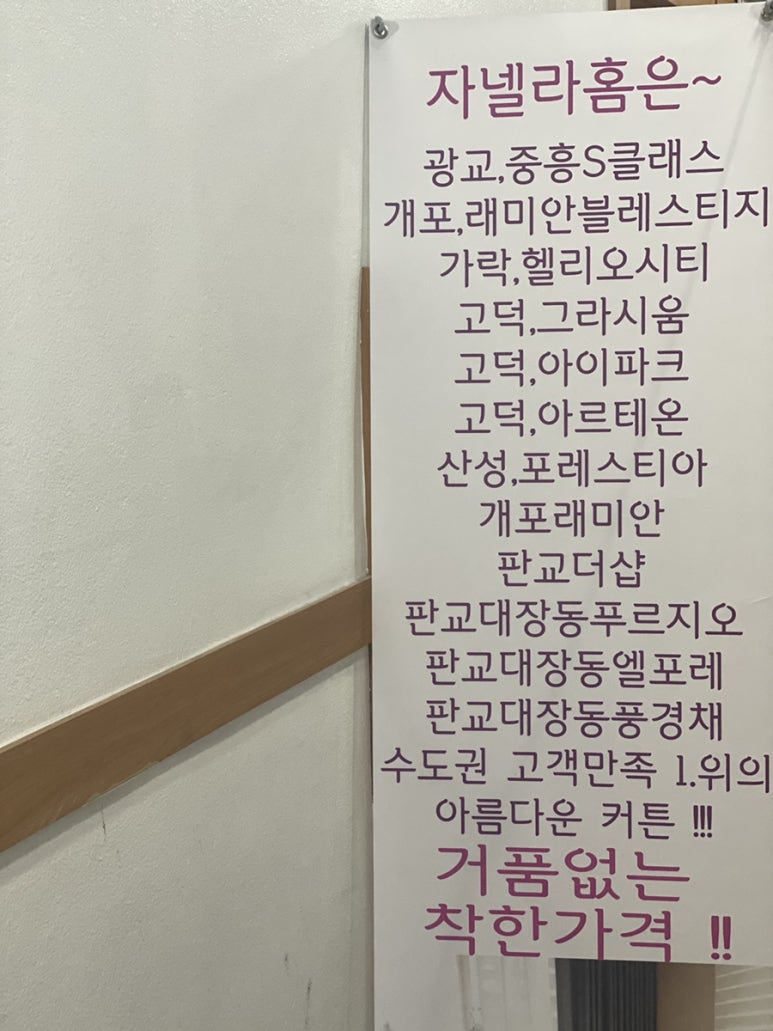 자넬라홈은~
광교,중흥S클래스
개포,래미안블레스티지
가락,헬리오시티
고덕,그라시움
고덕,아이파크
고덕,아르테온
산성,포레스티아
개포래미안
판교더샵
판교대장동푸르지오
판교대장동엘포레
판교대장동풍경채
수도권 고객만족 1.위의
아름다운 커튼 !!!
거품없는
착한가격 !!